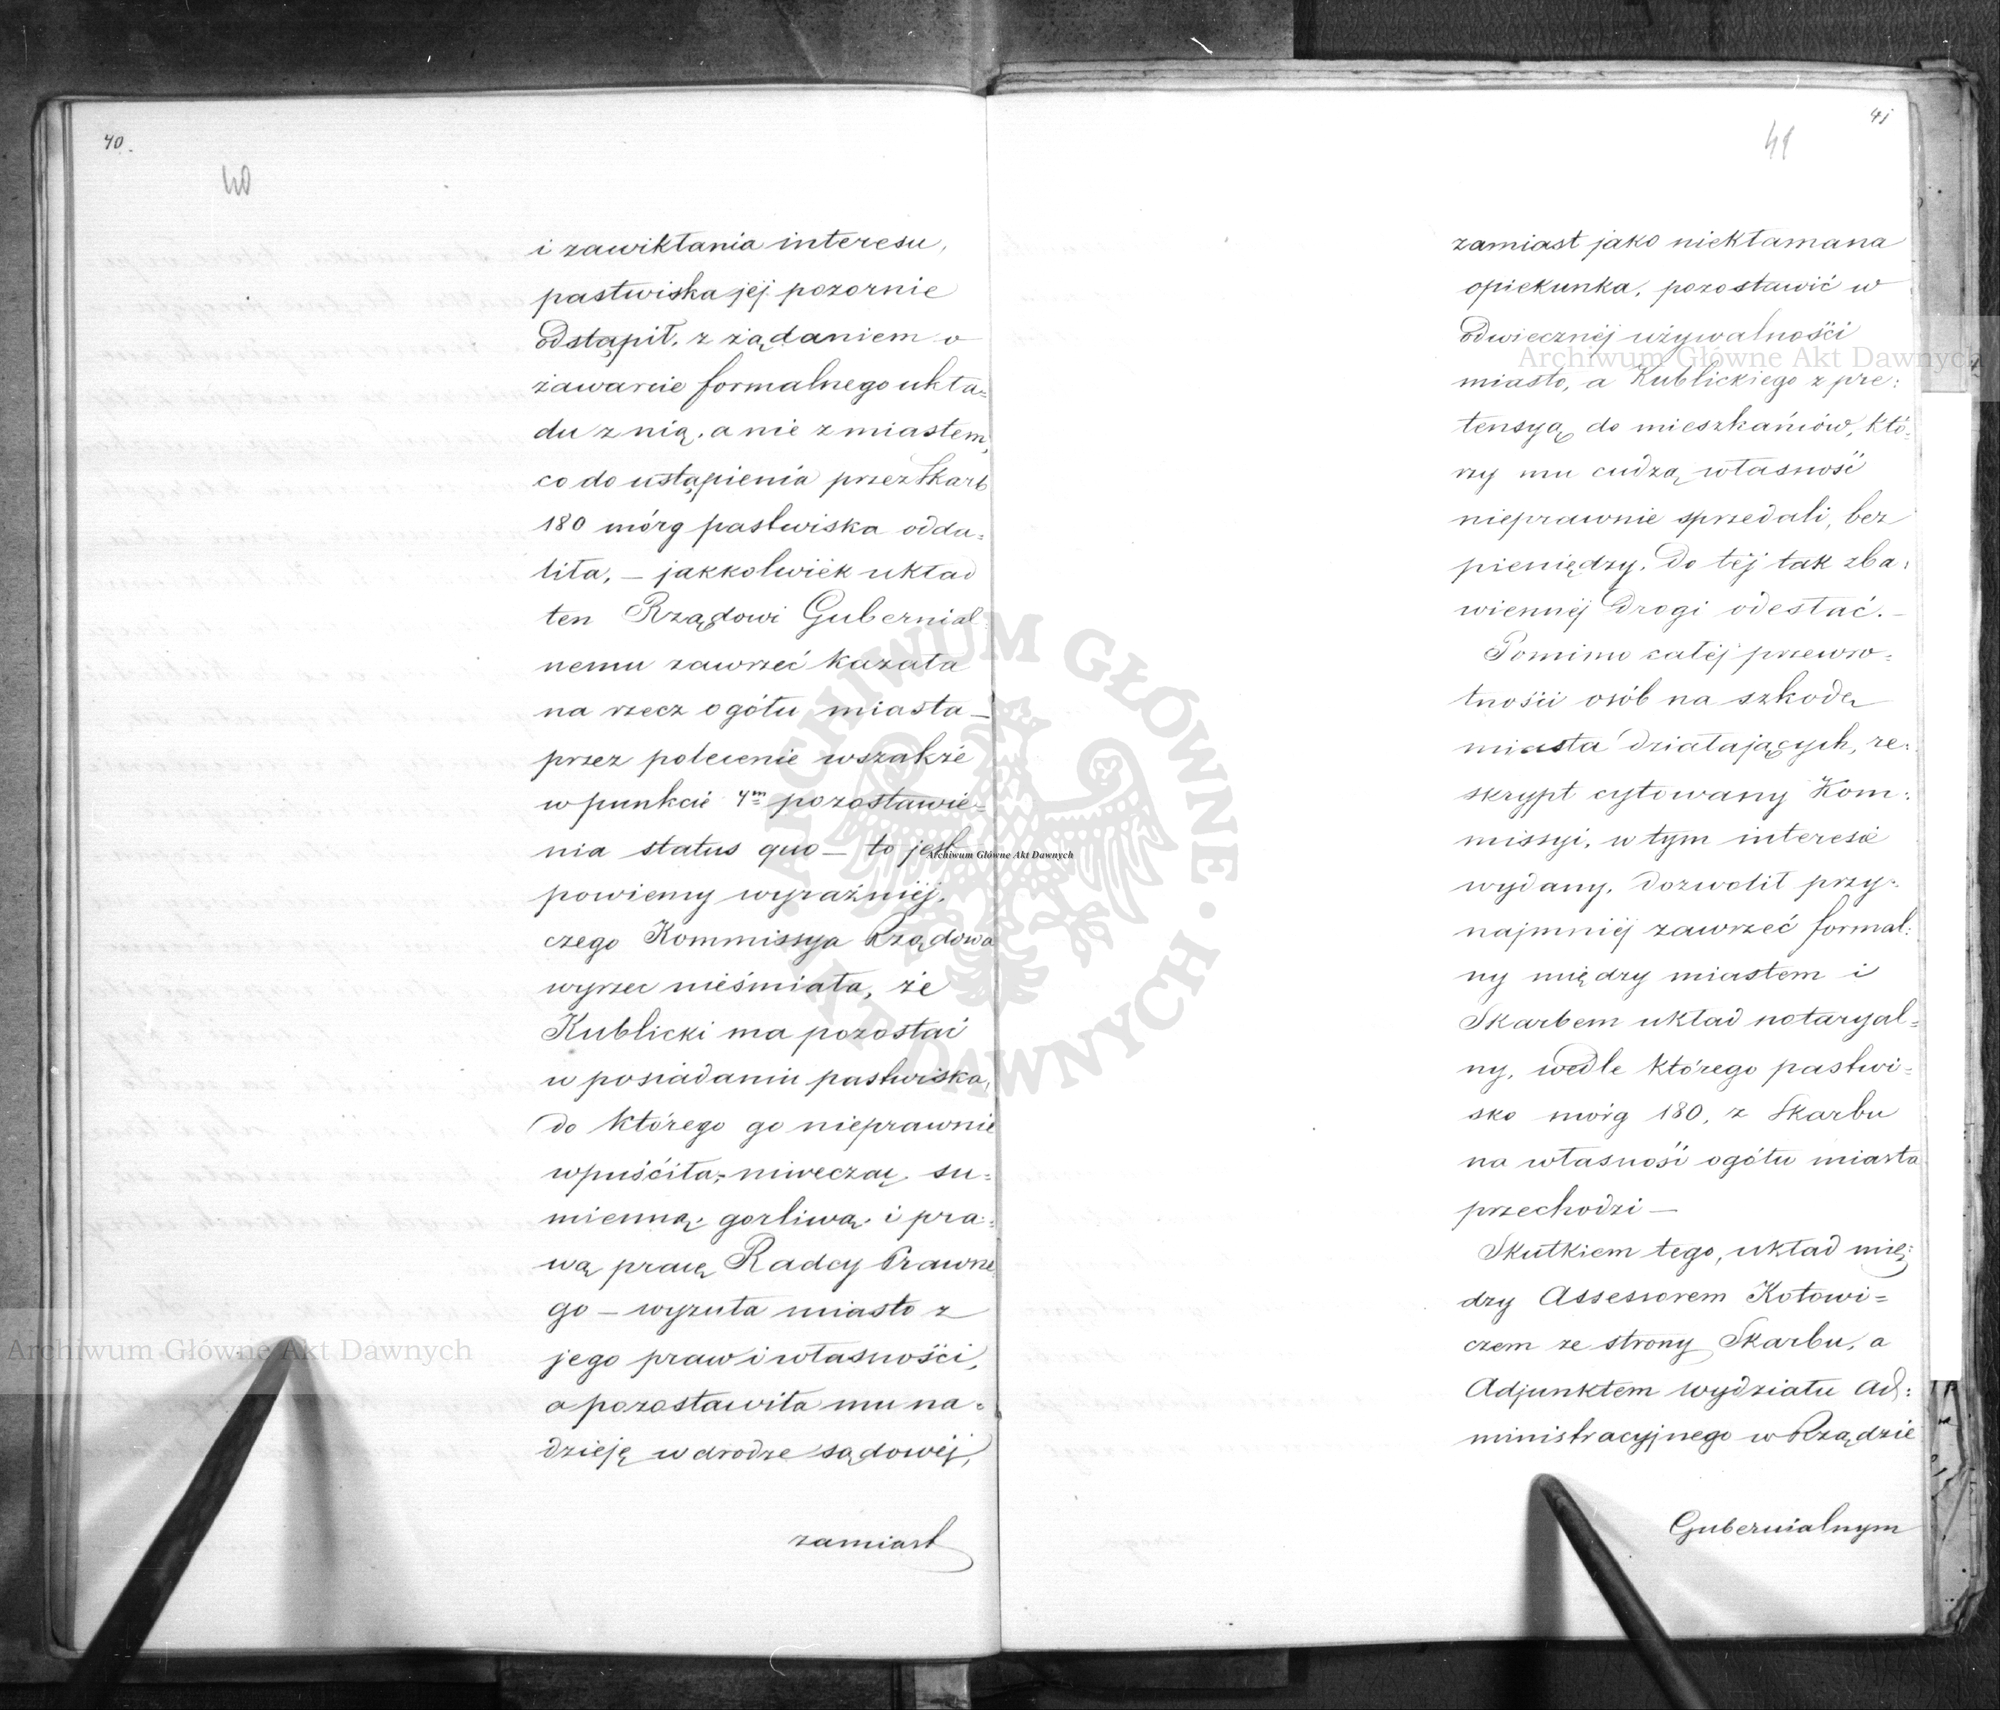 40.
40
i zawikłania interesu,
pastwiska jej pozornie
odstąpił, z żądaniem o
zawarcie formalnego ukła=
du z nią, a nie z miastem,
co do ustąpienia przez Skarb
180 mórg pastwiska oddu=
liła, — jakkolwiek układ
ten Rządowi Gubernial=
nemu zawrzeć kazała
na rzecz ogółu miasta —
przez polecenie wszakże
w punkcie 4m pozostawie=
nia status quo — to jest
powiemy wyraźniéj,
czego Kommissya Rządowa
wyrzec nieśmiała, że
Kublicki ma pozostać
w posiadaniu pastwiska,
do którego go nieprawnie
wpuściła, niwecząc su=
mienną, gorliwą i pra=
wą pracę Radcy Prawne
go — wyzuła miasto z
jego praw i własności,
a pozostawiła mu na=
dzieję w drodze sądowéj,
zamiast
41
41
zamiast jako niekłamana
opiekunka, pozostawić w
odwiecznéj używalności
miasto, a Kublickiego z pre=
tensyą do mieszkańców, któ=
rzy mu cudzą własność
nieprawnie sprzedali, bez
pieniędzy, do téj tak zba=
wiennéj drogi odesłać. —
Pomimo całéj przewro=
tności osób na szkodę
miasta działających, re=
skrypt cytowany Kom=
missyi, w tym interesie
wydany, dozwolił przy=
najmniéj zawrzeć formal=
ny między miastem i
Skarbem układ notaryal=
ny, wedle którego pastwi=
sko mórg 180, z Skarbu
na własność ogółu miasta
przechodzi —
Skutkiem tego, układ mię=
dzy Assessorem Kotowi=
czem ze strony Skarbu, a
Adjunktem wydziału Ad=
ministracyjnego w Rządzie
Gubernialnym
Archiwum Główne Akt Dawnych
Archiwum Główne Akt Dawnych
Archiwum Główne Akt Dawnych
ARCHIWUM GŁÓWNE AKT DAWNYCH